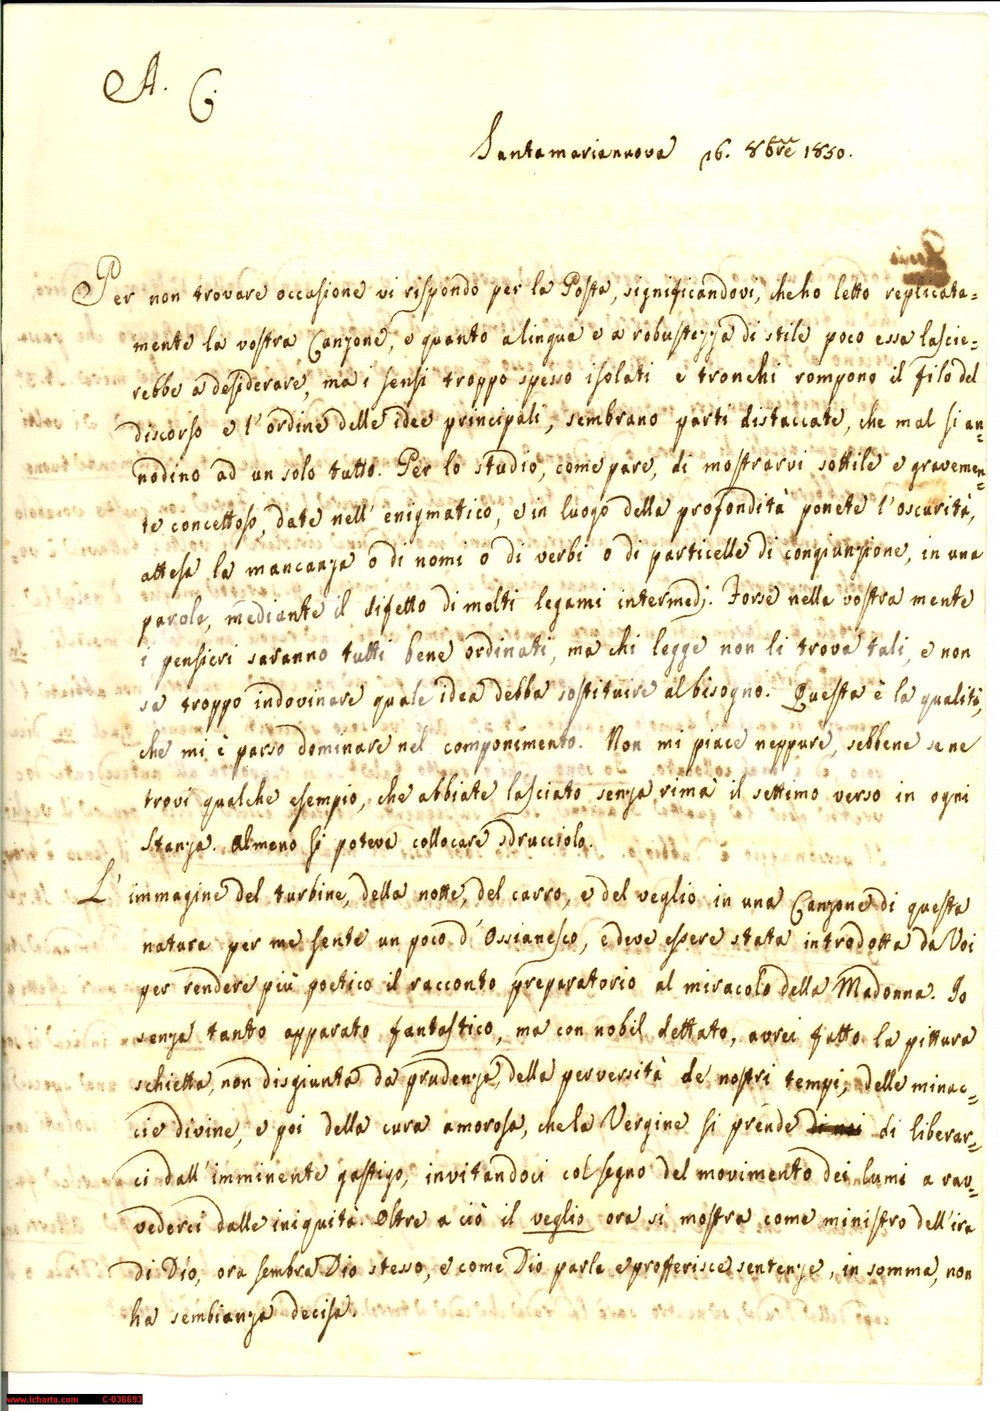 A. C.
Santamarianuova 16. 8bre 1850.
Per non trovare occasione vi rispondo per la Posta, significandovi, che ho letto replicata=
mente la vostra Canzone, e quanto a lingua e a robustezza di stile poco essa lascie=
rebbe a desiderare, ma i sensi troppo spesso isolati e tronchi rompono il filo del
discorso e l'ordine delle idee principali, sembrano parti distaccate, che mal si an=
nodino ad un solo tutto. Per lo studio, come pare, di mostrarvi sottile e gravemen=
te concettoso, date nell'enigmatico, e in luogo della profondità ponete l'oscurità,
attesa la mancanza o di nomi o di verbi o di particelle di congiunzione, in una
parola, mediante il difetto di molti legami intermedj. Forse nella vostra mente
i pensieri saranno tutti bene ordinati, ma chi legge non li trova tali, e non
sa troppo indovinare quale idea debba sostituire al bisogno. Questa è la qualità,
che mi è parso dominare nel componimento. Non mi piace neppure, sebbene se ne
trovi qualche esempio, che abbiate lasciato senza rima il settimo verso in ogni
Stanza. Almeno si poteva collocare sdrucciolo.
L'immagine del turbine, della notte, del carro, e del veglio in una Canzone di questa
natura per me sente un poco d'Ossianesco, e deve essere stata introdotta da Voi
per rendere più poetico il racconto preparatorio al miracolo della Madonna. Io
senza tanto apparato fantastico, ma con nobil dettato, avrei fatto la pittura
schietta, non disgiunta da prudenza, della perversità de nostri tempi, delle minac=
cie divine, e poi della cura amorosa, che la Vergine si prende di liberar=
ci dall'imminente gastigo, invitandoci col segno del movimento dei lumi a rav=
vederci dalle iniquità. Oltre a ciò il veglio ora si mostra come ministro dell'ira
di Dio, ora sembra Dio stesso, e come Dio parla e profferisce sentenze, in somma, non
ha sembianza decisa.
www.icharta.com C-036693